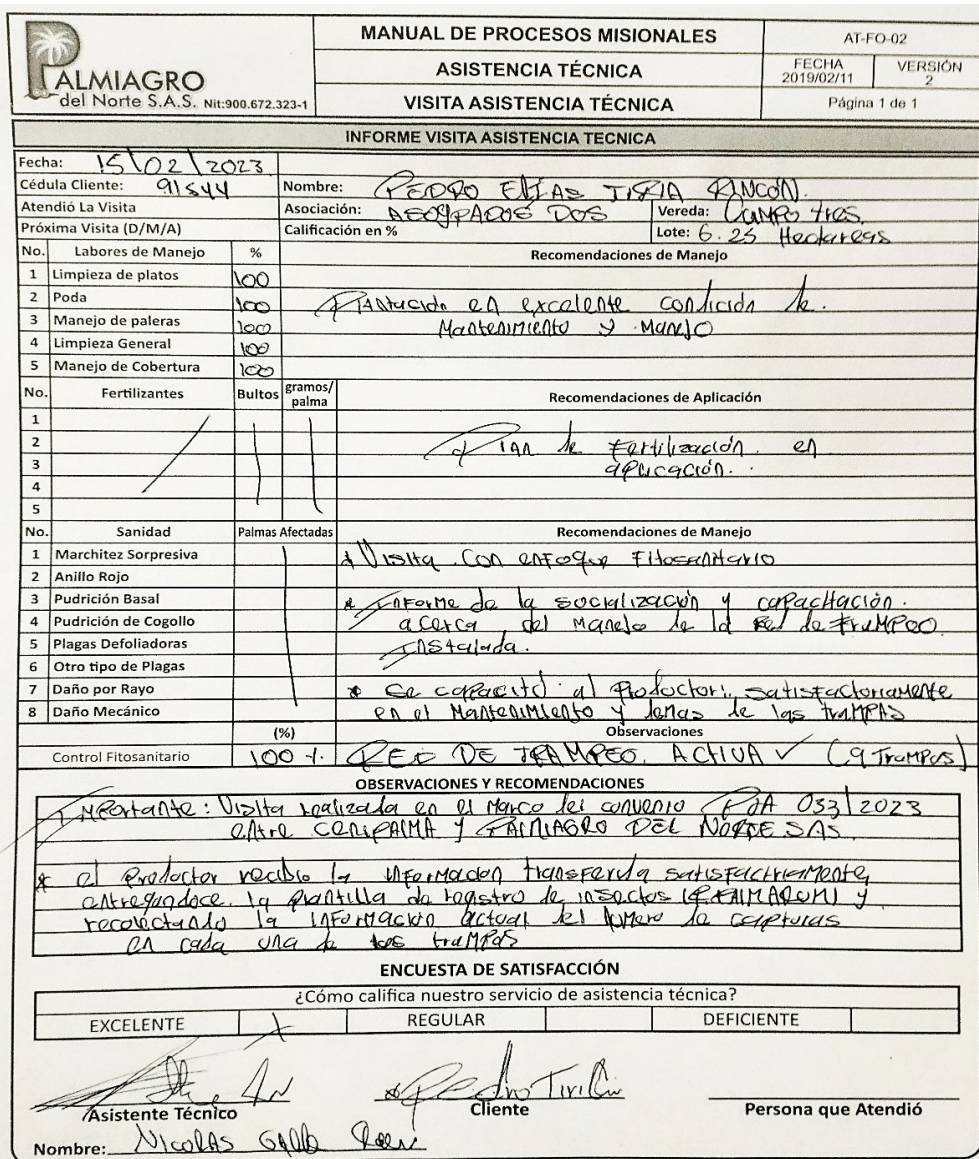 PALMIAGRO
del Norte S.A.S. Nit:900.672.323-1
MANUAL DE PROCESOS MISIONALES
ASISTENCIA TÉCNICA
VISITA ASISTENCIA TÉCNICA
AT-FO-02
FECHA 2019/02/11
VERSIÓN 2
Página 1 de 1
INFORME VISITA ASISTENCIA TECNICA
Fecha: 15/02/2023
Cédula Cliente: 91544 Nombre: PEDRO ELÍAS RINCÓN.
Atendió La Visita Asociación: DOS Vereda: CAMPO tres
Próxima Visita (D/M/A) Calificación en % Lote: 6.25 Hectareas
No. Labores de Manejo % Recomendaciones de Manejo
1 Limpieza de platos 100
2 Poda 100 Plantación en excelente condición de.
3 Manejo de paleras 100 Mantenimiento y Manejo
4 Limpieza General 100
5 Manejo de Cobertura 100
No. Fertilizantes Bultos gramos/palma Recomendaciones de Aplicación
1
2 Plan de Fertilización en
3 aplicación.
4
5
No. Sanidad Palmas Afectadas Recomendaciones de Manejo
1 Marchitez Sorpresiva * Visita con enfoque Fitosanitario
2 Anillo Rojo
3 Pudrición Basal * Informe de la socialización y capacitación.
4 Pudrición de Cogollo acerca del Manejo de la Red de Trampeo
5 Plagas Defoliadoras Instalada.
6 Otro tipo de Plagas
7 Daño por Rayo * Se capacitó al Productor satisfactoriamente
8 Daño Mecánico en el Mantenimiento y temas de las traMPAS
(%) Observaciones
Control Fitosanitario 100 % RED DE TRAMPEO. ACTIVA ✓ (9 TraMPas)
OBSERVACIONES Y RECOMENDACIONES
IMPortante: Visita realizada en el Marco del convenio 033/2023
entre CENIPALMA y PALMIAGRO DEL NORTE SAS
* el Productor recibio la información transferida satisfactriamente,
entregandoce la plantilla de registro de insectos (R. PALMARUM) y
recolectando la información actual del número de capturas
en cada una de las traMPas
ENCUESTA DE SATISFACCIÓN
¿Cómo califica nuestro servicio de asistencia técnica?
EXCELENTE X REGULAR DEFICIENTE
Asistente Técnico Cliente Persona que Atendió
Nombre: Nicolás